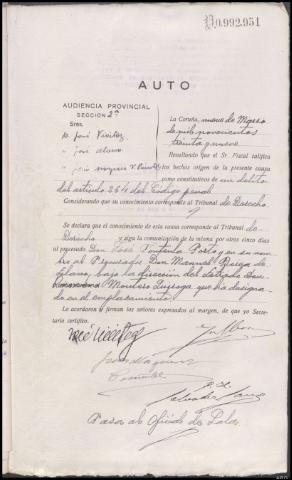 No.992.951
AUTO
AUDIENCIA PROVINCIAL
SECCION 2ª
Sres.
D. José Viéitez
" José Alonso
" José
La Coruña, de Marzo
de mil novecientos
treinta y nueve
Resultando que el Sr. Fiscal califica
los hechos origen de la presente causa
como constitutivos de un delito
del artículo 264 del Código penal
Considerando que su conocimiento corresponde al Tribunal de Derecho
Se declara que el conocimiento de esta causa corresponde al Tribunal de
Derecho y siga la comunicación de la misma por otros cinco días
al procesado Don José Porto y en su nom-
bre al Procurador Don Manuel de
bajo la dirección del letrado Don
Montero que ha designa-
do en el emplazamiento
Lo acordaron y firman los señores expresados al margen, de que yo Secre-
tario certifico.
José Viéitez
Salvador
Pasa al Oficial Sr.